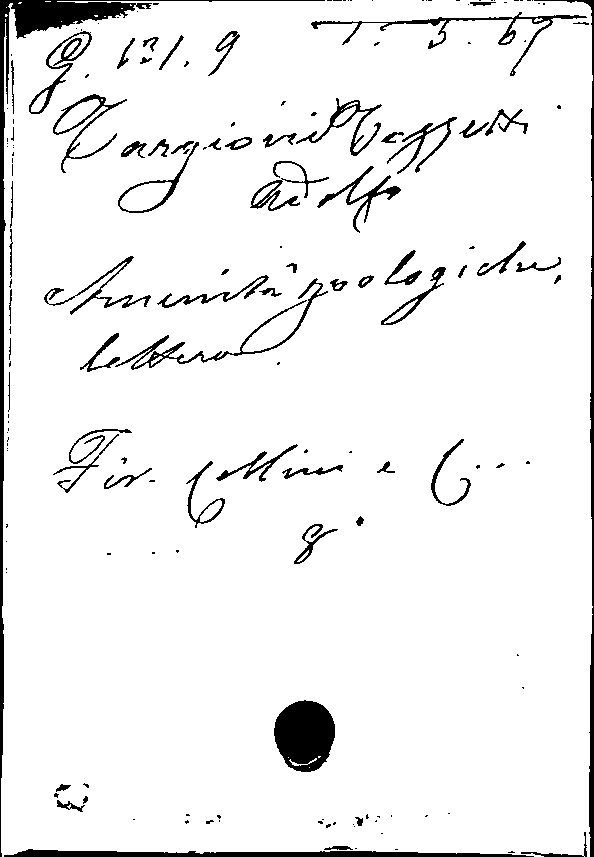 G. 131. 9 1. 3. 67
Targioni Tozzetti
Adolfo
Amenità zoologiche,
lettera.
Fir. Cellini e C...
8°